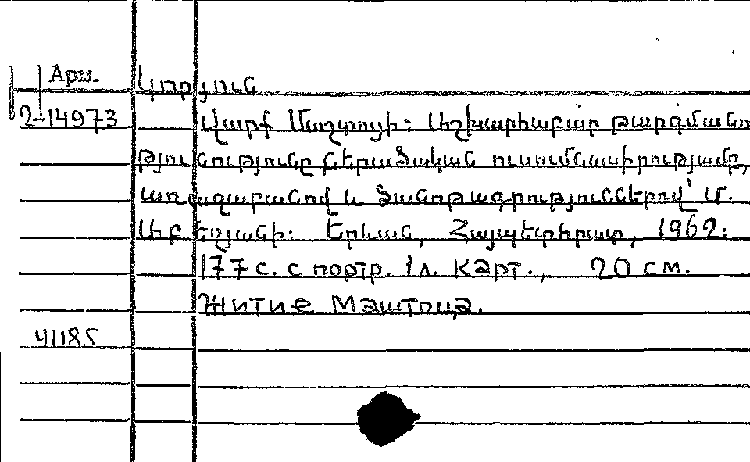 Арм.
Կորյուն
2-14973
Վարք Մաշտոցի: Աշխարհաբար թարգմանու
թյունությունը ներածական ուսումնասիրությամբ,
առաջաբանով և ծանոթագրություններով՝ Մ.
Աբեղյանի: Երևան, Հայպետհրատ, 1962:
177 с. с портр. 1 л. карт., 20 см.
Житие Маштоца.
41185